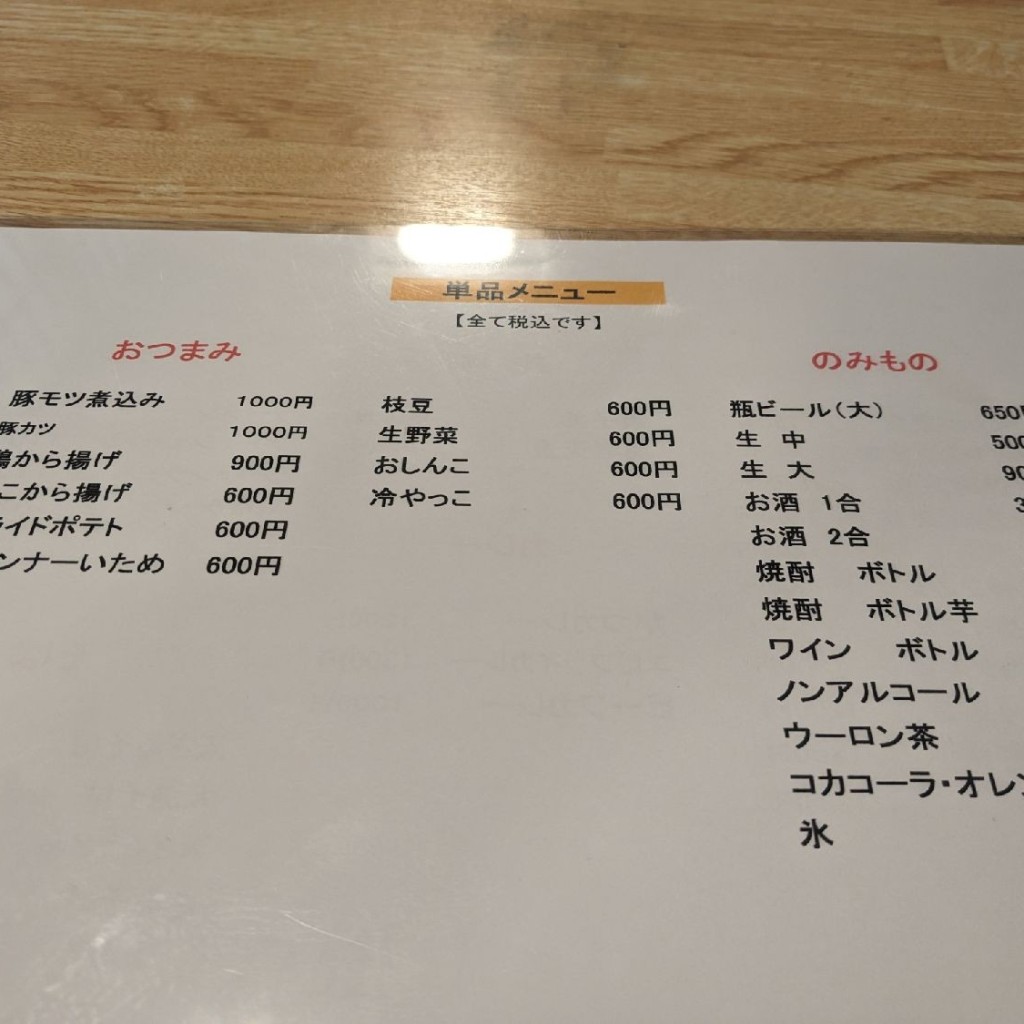 単品メニュー
【全て税込です】
おつまみ
豚モツ煮込み 1000円
豚カツ 1000円
鶏から揚げ 900円
こから揚げ 600円
ライドポテト 600円
ンナーいため 600円
枝豆 600円
生野菜 600円
おしんこ 600円
冷やっこ 600円
のみもの
瓶ビール(大) 650円
生 中 500
生 大 90
お酒 1合 3
お酒 2合
焼酎 ボトル
焼酎 ボトル芋
ワイン ボトル
ノンアルコール
ウーロン茶
コカコーラ・オレン
氷